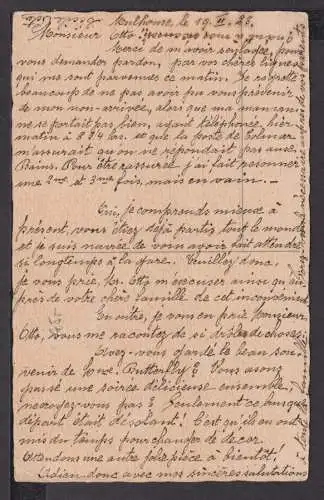 Mulhouse, le 19. II. 23.
Monsieur Otto
Merci de m'avoir soulagée, pour
vous demander pardon, par vos chères lignes
qui me sont parvenues ce matin. Je regrette
beaucoup de ne pas avoir pu vous prévenir
de mon non-arrivée, alors que ma maman
ne se portait pas bien, ayait téléphonée, hier
matin à 8 1/4 hs. et que la poste de Colmar
m'assurait qu'on ne répondait pas aux
Bains. Pour être rassurée j'ai fait resonner
une 2me et 3me fois, mais en vain. —
Oui, je comprends mieux à
présent, vous étiez déjà partis tout le monde
et je suis navrée de vous avoir fait attendre
si longtemps à la gare. Veuillez donc,
je vous prie, Mr. Otto m'excuser ainsi qu'au-
près de votre chère famille de cet inconvénient
En outre, je vous en prie Monsieur
Otto, vous me racontez de si drôles de choses;
Avez-vous gardé le beau sou-
venir de Mme. Butterfly? Nous avons
passé une soirée délicieuse ensemble,
ne croyez-vous pas? Seulement ce brusque
départ était désolant! C'est qu'ils en ont
mis du temps pour changer de décor.
Attendons une autre jolie pièce à bientôt!
Adieu donc avec mes sincères salutations